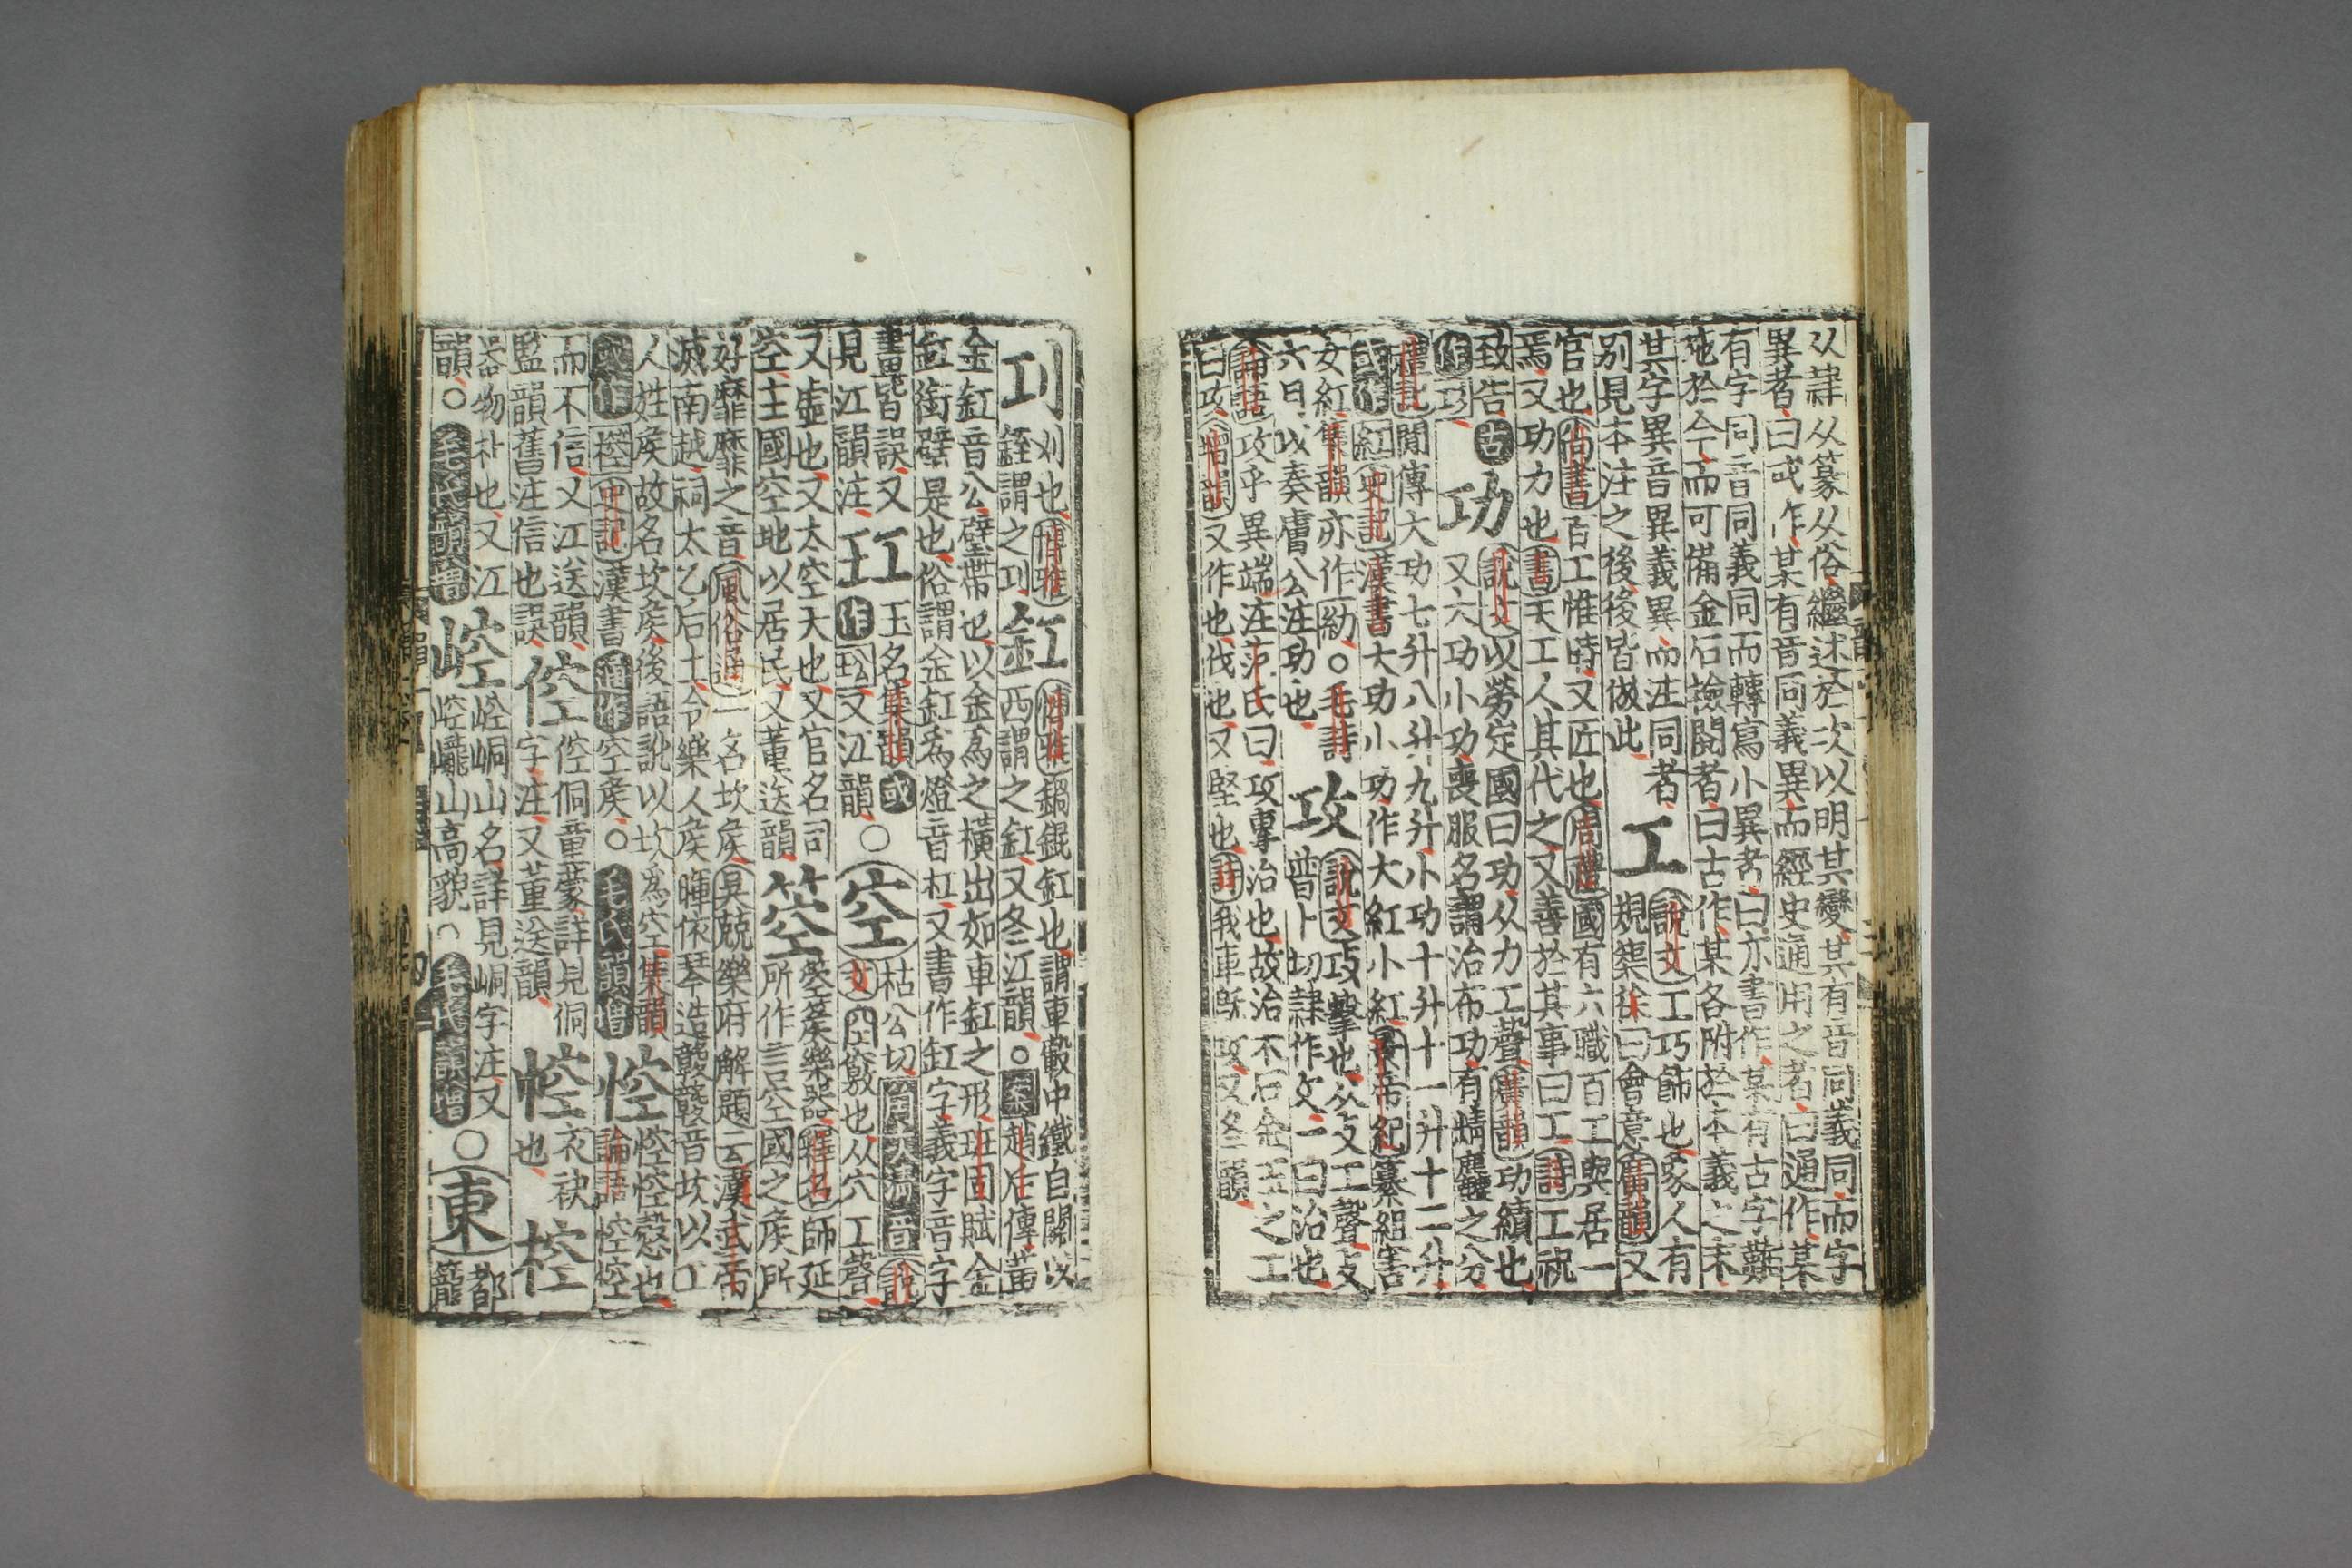 从隷从篆从俗繼述於次以明其變其有音同義同而字
異者曰或作某有音同義異而經史通用之者曰通作某
有字同音同義同而轉寫小異者曰亦書作某有古字難
施於今而可備金石撿閱者曰古作某各附於本義之末
其字異音異義異而注同者
別見本注之後後皆倣此
工
說文工巧飾也象人有
規榘徐曰會意廣韻又
官也尚書百工惟時又匠也周禮國有六職百工與居一
焉又功力也書天工人其代之又善於其事曰工詩工祝
致告古
作
功
說文以勞定國曰功从力工聲廣韻功績也
又六功小功喪服名謂治布功有精麤之分
禮記間傳大功七升八升九升小功十升十一升十二升
或作紅史記漢書大功小功作大紅小紅景帝紀纂組害
女紅集韻亦作○毛詩
六月以奏膚公注功也
攻
說文攻擊也从攵工聲攵
普卜切隷作攵一曰治也
論語攻乎異端注范氏曰攻專治也故治木石金玉之工
曰攻增韻又作也伐也又堅也詩我車旣攻又冬韻
刈也博雅
銍謂之
釭
博雅鍋錕釭也謂車轂中鐵自關以
西謂之釭又冬江韻○案趙后傳黃
金釭音公壁帶也以金為之橫出如車釭之形班固賦金
釭銜壁是也俗謂金釭為燈音杠又書作缸字義字音字
畫皆誤又
見江韻注
玒
玉名集韻或
作又江韻
○
空
枯公切角次清音說
文空竅也从穴工聲
又虛也又太空天也又官名司
空主國空地以居民又董送韻
箜
箜篌樂器釋名師延
所作言空國之侯所
好靡靡之音風俗通一名坎侯吳兢樂府解題云漢武帝
滅南越祠太乙后土令樂人侯暉依琴造音坎以工
人姓侯故名坎侯後語訛以坎為空集韻
或作椌史記漢書通作空侯○毛氏韻增
悾
悾悾慤也
論語悾悾
而不信又江送韻
監韻舊注信也誤
倥
倥侗童蒙詳見侗
字注又董送韻
衣袂
也
椌
器物朴也又江
韻○毛晃韻增
崆
崆峒山名詳見峒字注又
崆巄山高貌○毛氏韻增
○
東
都
籠